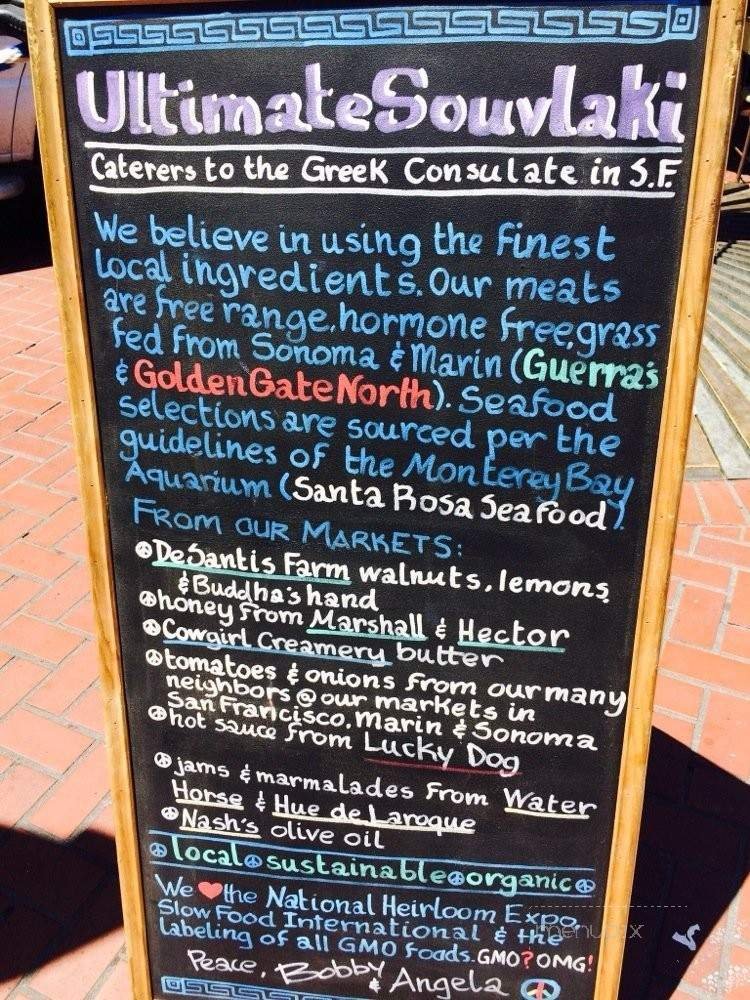 UltimateSouvlaki
Caterers to the Greek Consulate in S.F.
We believe in using the finest
local ingredients. Our meats
are free range, hormone free, grass
fed from Sonoma & Marin (Guerra's
& Golden Gate North). Seafood
selections are sourced per the
guidelines of the Monterey Bay
Aquarium (Santa Rosa Seafood).
From our Markets:
DeSantis Farm walnuts, lemons,
& Buddha's hand
honey from Marshall & Hector
Cowgirl Creamery butter
tomatoes & onions from our many
neighbors @ our markets in
San Francisco, Marin & Sonoma
hot sauce from Lucky Dog
jams & marmalades from Water
Horse & Hue de Laroque
Nash's olive oil
local sustainable organic
We ❤ the National Heirloom Expo,
Slow Food International & the
labeling of all GMO foods. GMO? OMG!
Peace, Bobby
& Angela